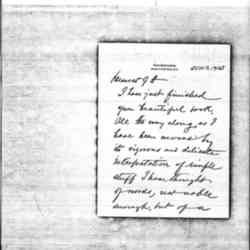 Dearest
I have just finished
your beautiful book,
all the way along, as I
have been moved by
its vigorous and delicate
interpretation of simple
stuff I have thought
of words, not noble
enough, but of a